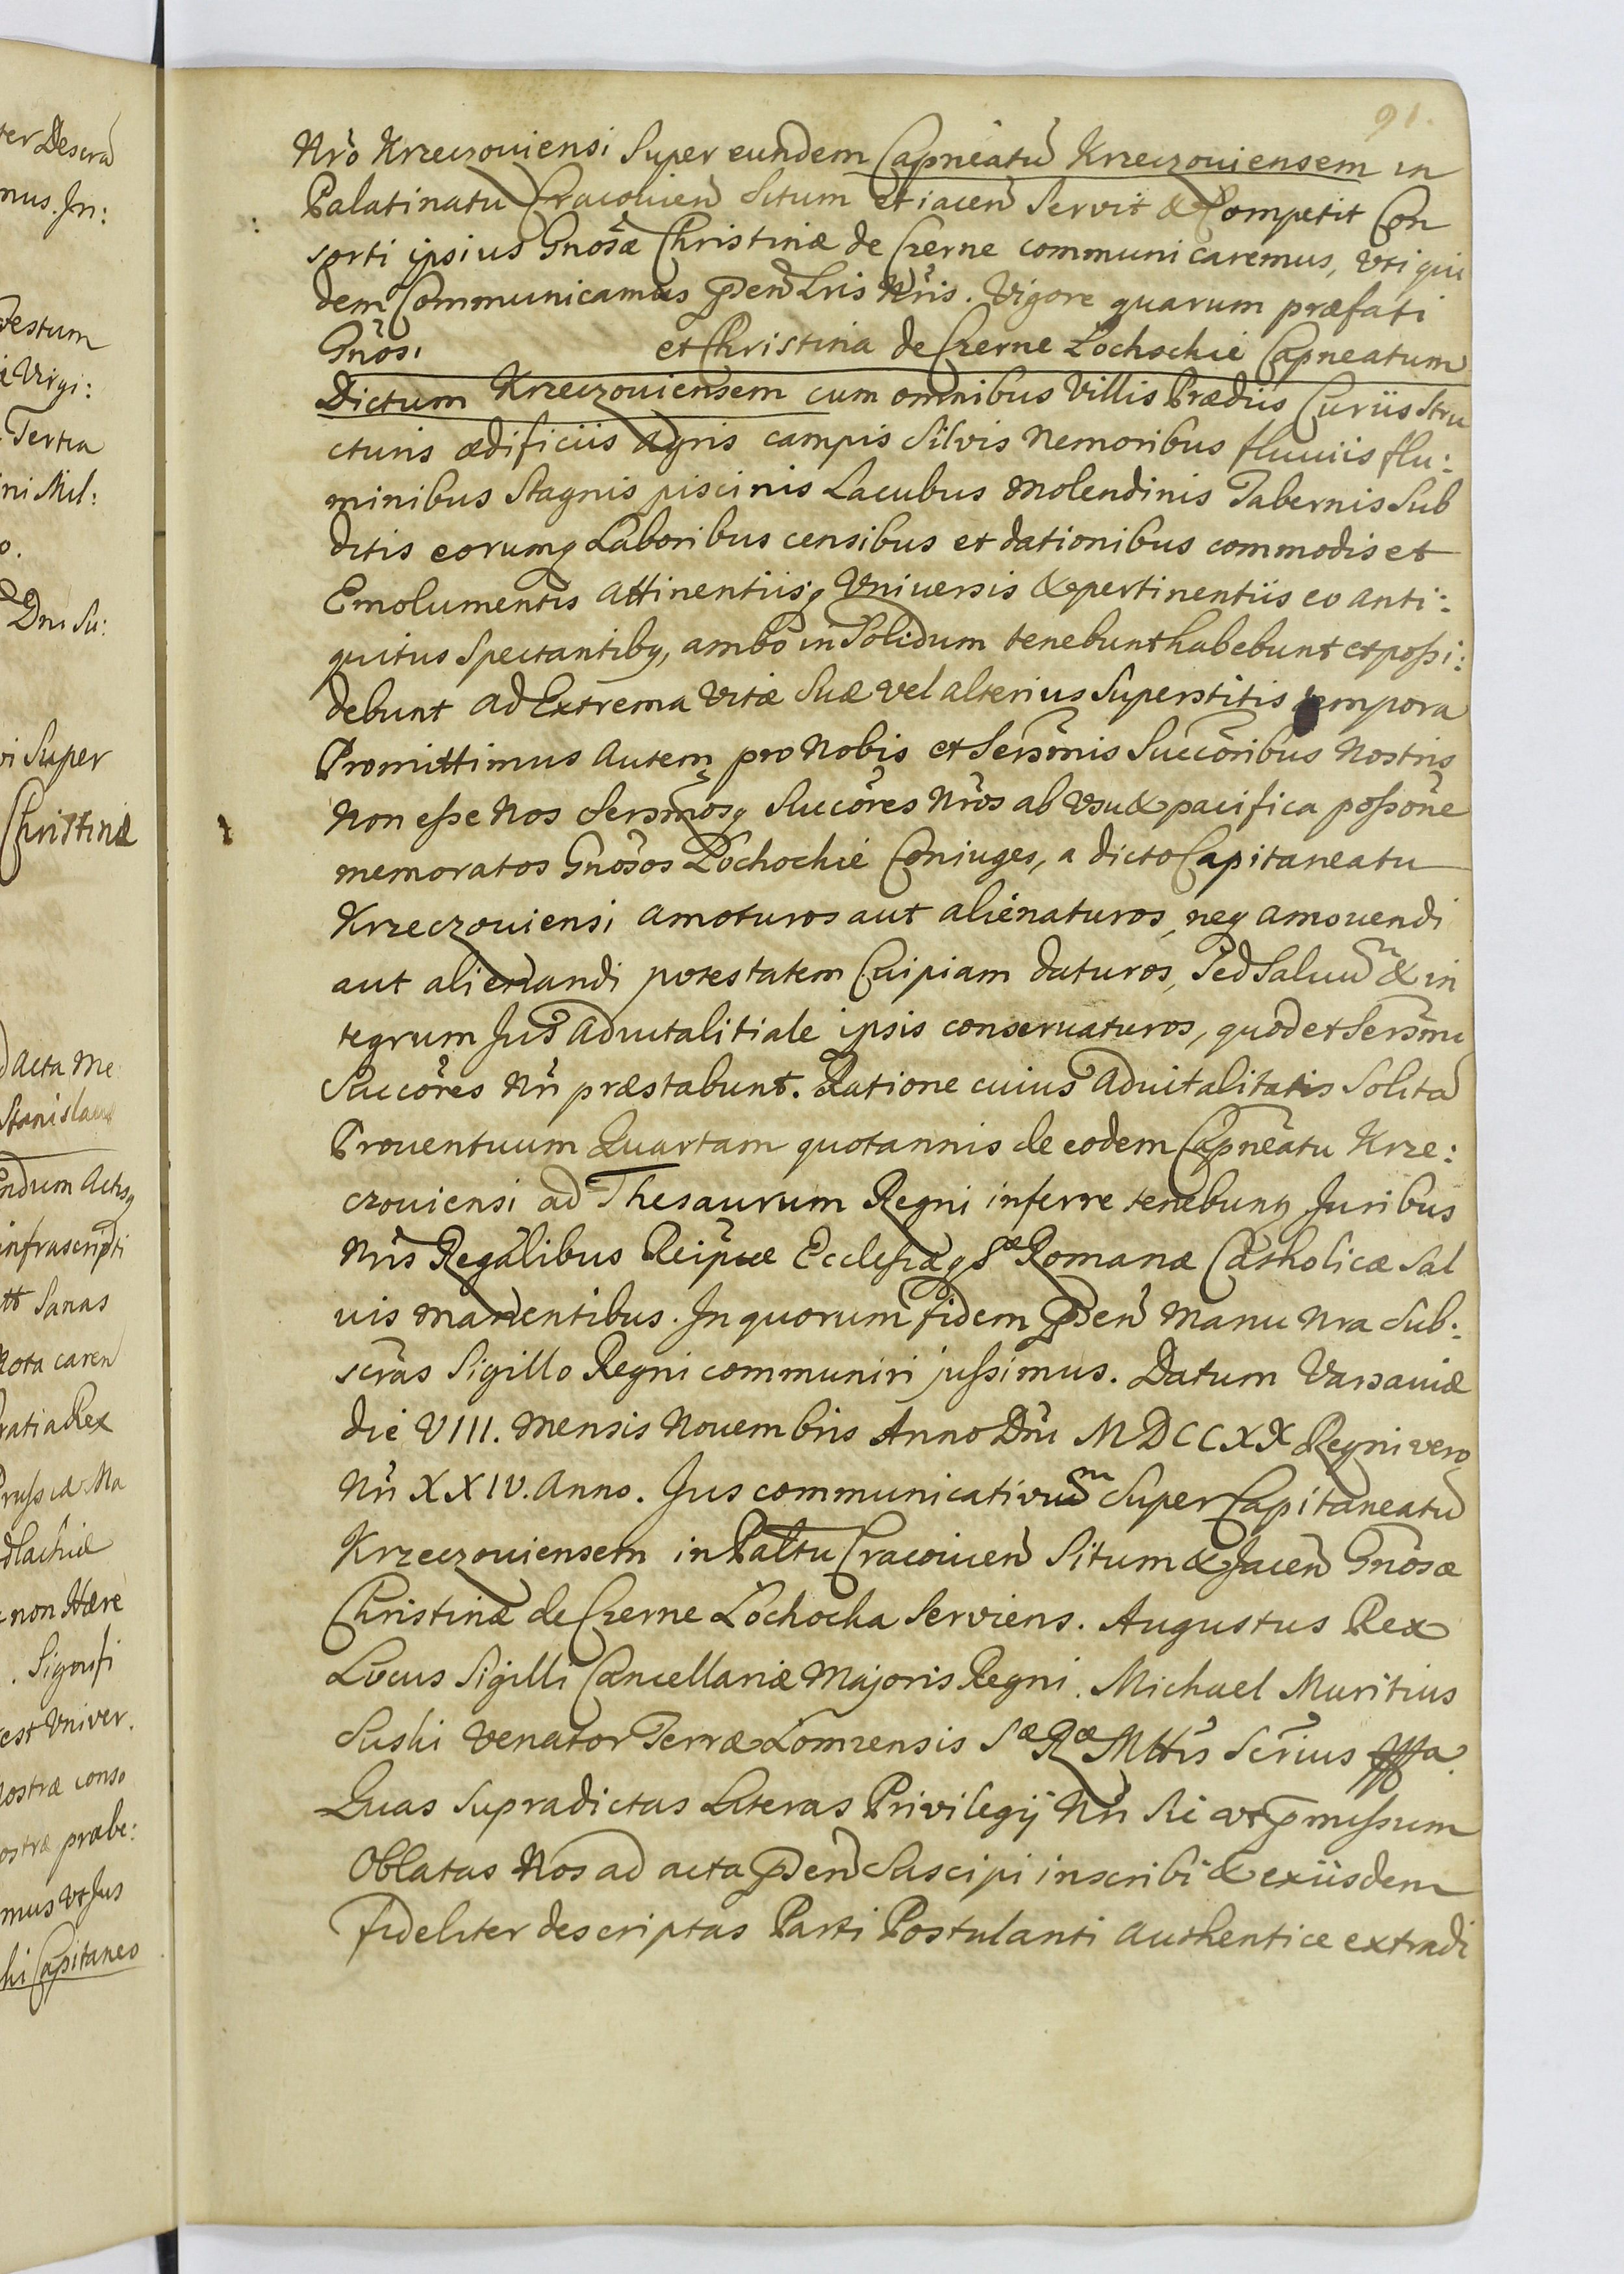 91.
Nrõ Krzeczoviensi Super eundem Capneatũ Krzeczoviensem in
Palatinatu Cracovien̄ Situm et iacen̄ Servit & Competit Con
sorti ipsius Gnosæ Christinæ de Czerne communicaremus, Uti qui
dem Communicamus p̄sen̄ Lris Nr̃is. Vigore quarum præfati
Gnõsi et Christina de Czerne Łochochie Capneatum
Dictum Krzeczouiensem cum omnibus Villis Prædiis Curiis Stru
cturis ædificiis Agris campis Silvis Nemoribus fluuiis flu:
minibus Stagnis piscinis Lacubus Molendinis Tabernis Sub
ditis eorumq Laboribus censibus et dationibus commodis et
Emolumentis Attinentiisq Vniuersis & pertinentiis eo anti:
quitus Spectantibq, ambo in Solidum tenebunt habebunt et possi:
debunt ad Extrema Vitæ Suæ vel alterius Superstitis tempora
Promittimus Autem pro Nobis et Sersm̃is Succõribus Nostris
Non esse Nos Sersm̃osq Succõres Nrõs ab Vsu & pacifica possõne
memoratos Gnõsos Łochochie Coniuges, a dicto Capitaneatu
Krzeczouiensi amoturos aut alienaturos, neq amouendi
aut alienandi potestatem Cuipiam daturos, Sed Saluũm & in
tegrum Jus Aduitalitiale ipsis conseruaturos, quod et Sersm̃i
Succõres Nr̃i præstabunt. Ratione cuius Aduitalitatis Solitã
Prouentuum Quartam quotannis de eodem Capneãtu Krze:
czouiensi ad Thesaurum Regni inferre tenebunt Juribus
Nris Regalibus Reipcæ Ecclesiæq Sæ Romanæ Catholicæ Sal
uis manentibus. In quorum fidem p̄sen̄ Manu Nra Sub:
scr̃as Sigillo Regni communiri jussimus. Datum Varsaviæ
die VIII. Mensis Nouembris Anno Dñi MDCCXX Regni vero
Nr̃i XXIV. Anno. Jus communicativũm Super Capitaneatũ
Krzeczouiensem in Palttu Cracouien̄ Situm & Jacen̄ Gnõsæ
Christinæ de Czerne Łochocka Serviens. Augustus Rex
Locus Sigilli Cancellariæ Majoris Regni. Michael Mauritius
Suski Venator Terræ Łomzensis Sæ Ræ Mttis Scr̃ius
Quas Supradictas Literas Privilegij Nr̃i Si ut p̄missum
Oblatas Nos ad acta p̄sen̄ Suscipi inscribi & exiisdem
fideliter descriptas Parti Postulanti Authentice extradi
ter Descra
mus. In:
festum
Virgi:
Tertia
ni Mil:
o.
Dni Su:
vi Super
Christinæ
Acta Me
Stanislaus
endum Actisq
infrascripti
tt Sanas
Nota caren̄
ratia Rex
Prussiæ Ma
dlachiæ
non Hære
. Signifi
est Univer.
Nostræ conso
ostræ præbe:
mus Ut Jus
ki Capitaneo